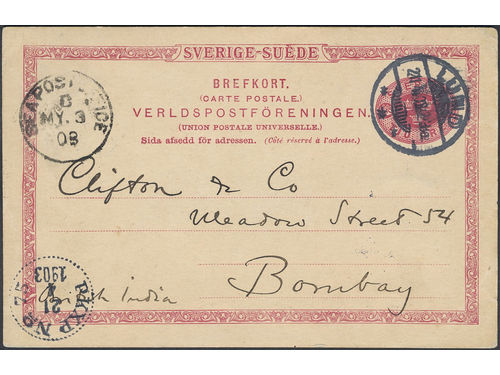 SVERIGE-SUÈDE
BREFKORT.
(CARTE POSTALE.)
VERLDSPOSTFÖRENINGEN.
(UNION POSTALE UNIVERSELLE.)
Sida afsedd för adressen. (Côté réservé à l'adresse.)
SEA POST OFFICE
MY. 3
03
LUND
Clifton & Co
Meadow Street 54
Bombay
British India
PKXP No 75
21
4
1903